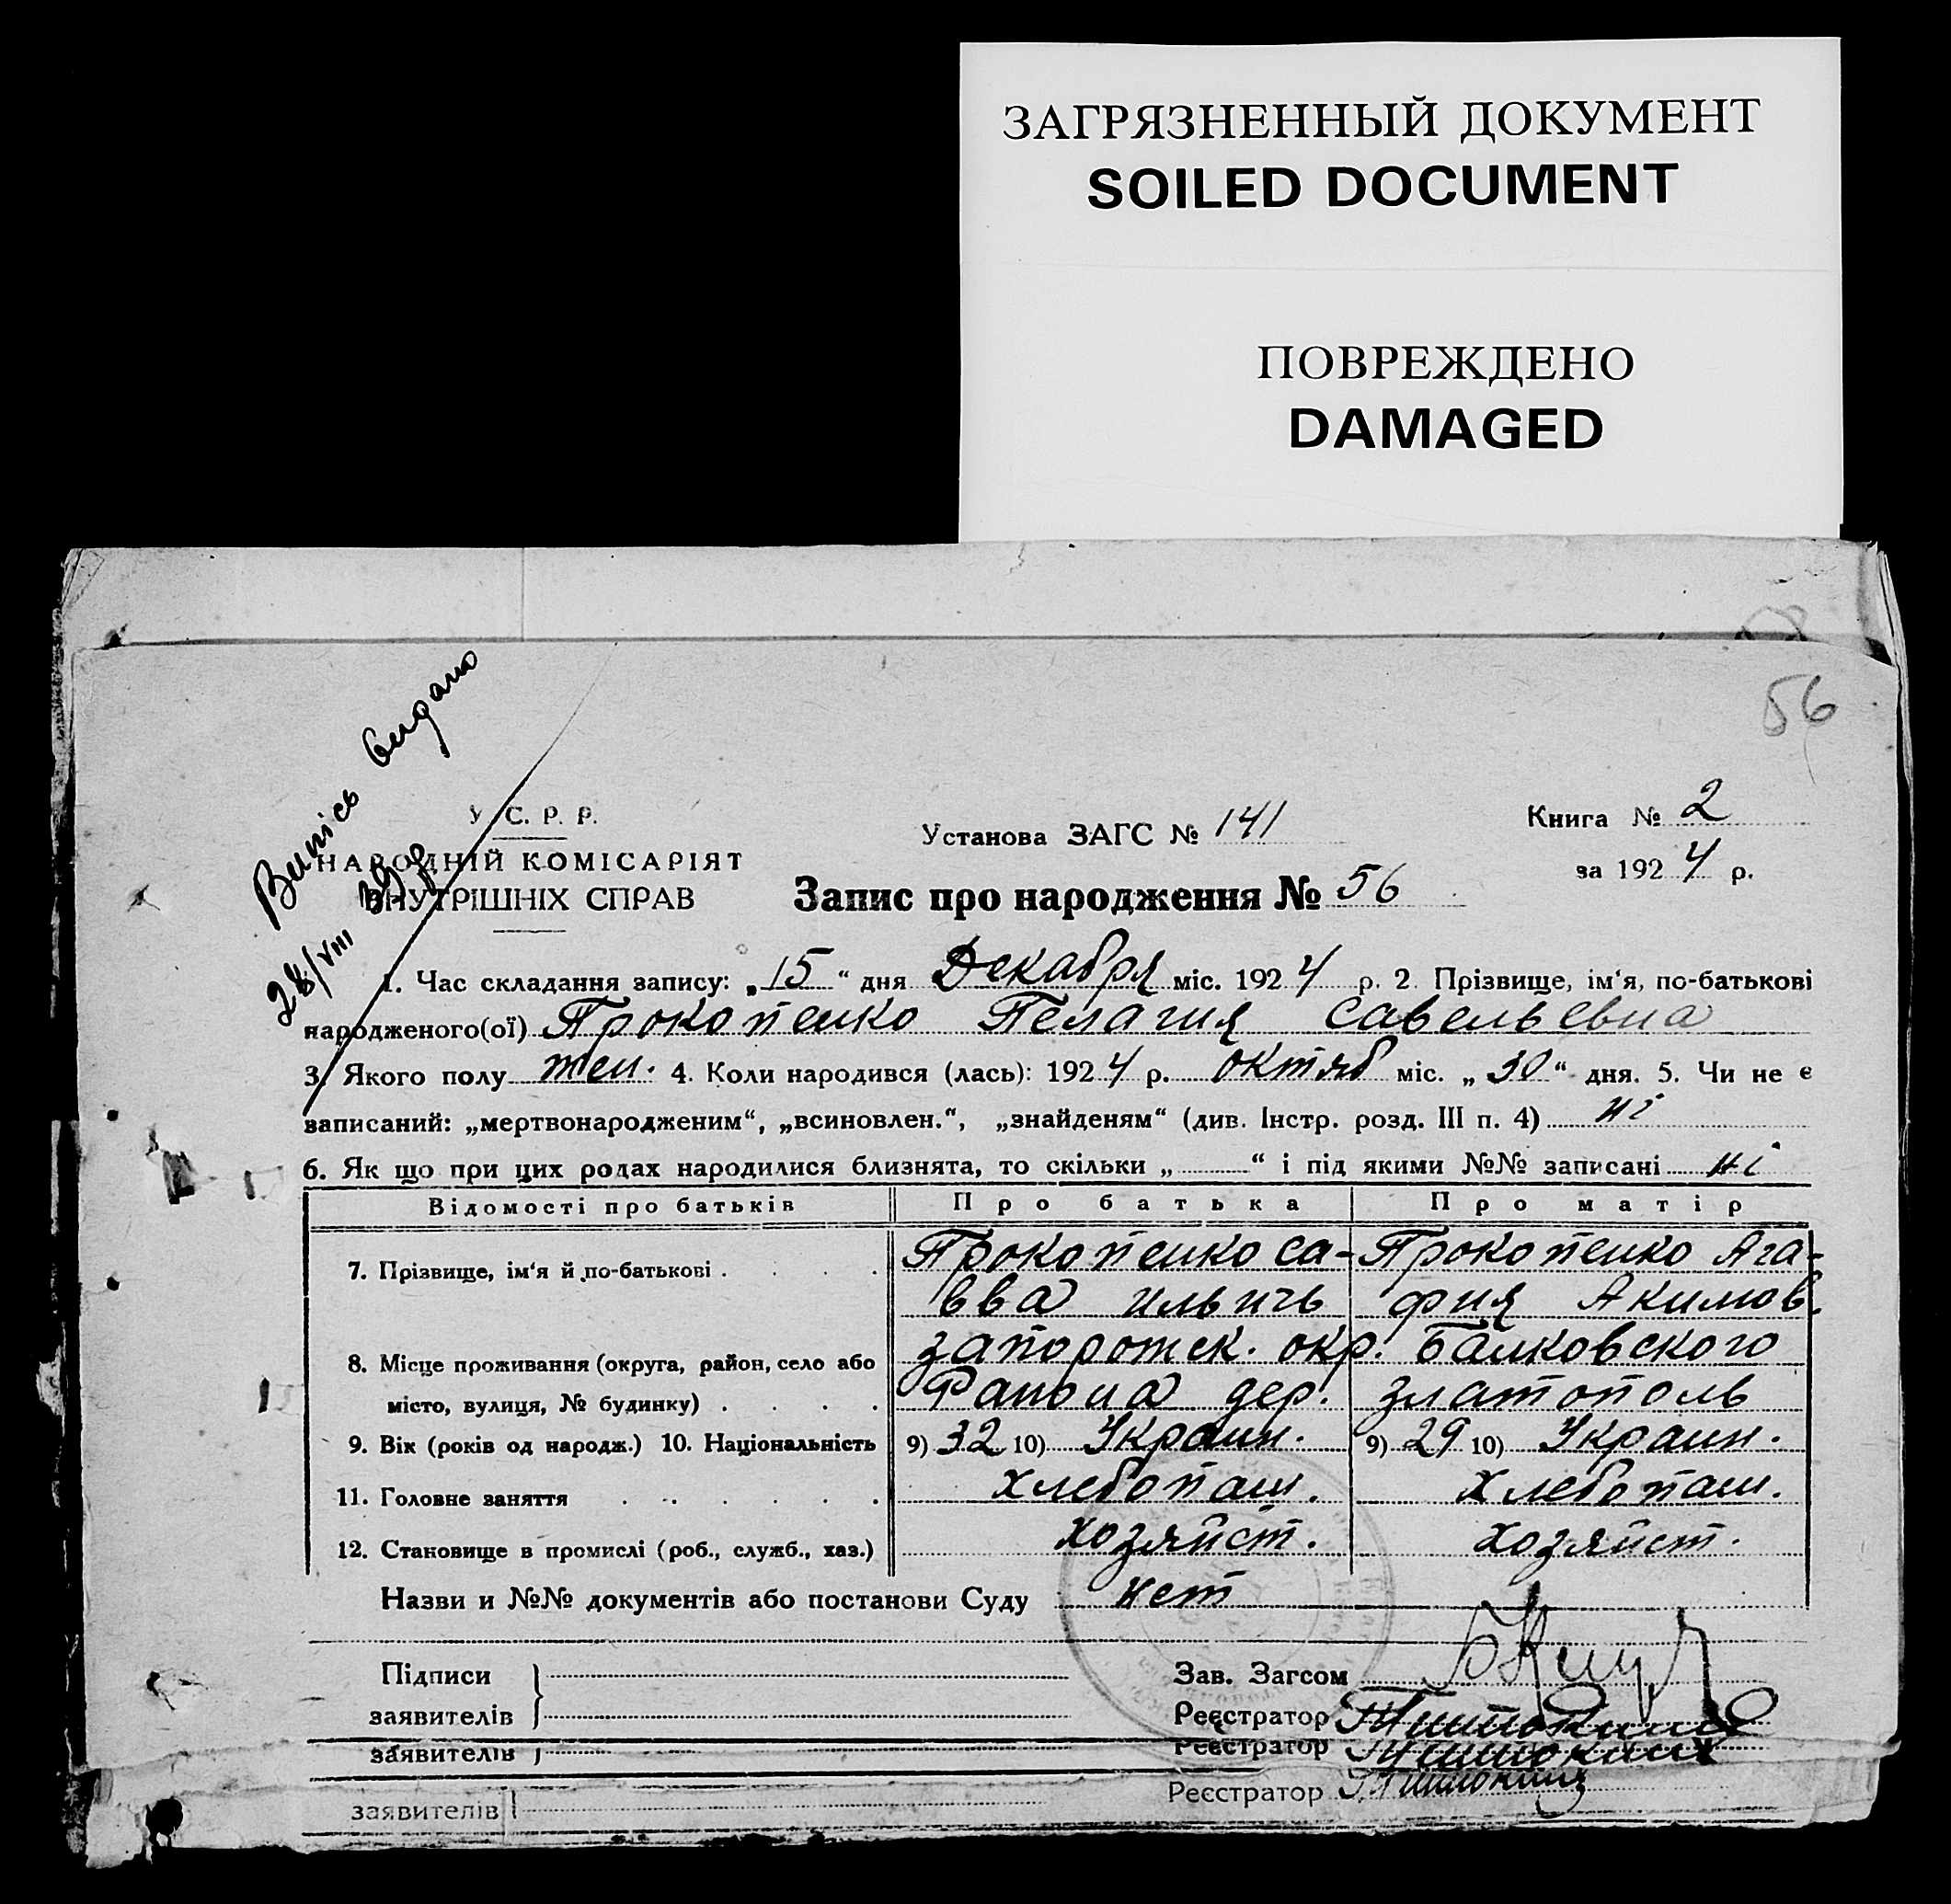 ЗАГРЯЗНЕННЫЙ ДОКУМЕНТ
SOILED DOCUMENT
ПОВРЕЖДЕНО
DAMAGED
56
Випісь видано
28/VIII 39 р
У. С. Р. Р.
НАРОДНІЙ КОМІСАРІЯТ
ВНУТРІШНІХ СПРАВ
Установа ЗАГС № 141
Книга № 2
за 1924 р.
Запис про народження № 56
1. Час складання запису: „15“ дня Декабря міс. 1924 р. 2. Прізвище, ім'я, по-батькові
народженого(ої) Прокопенко Пелагия Савельевна
3. Якого полу жен. 4. Коли народився (лась): 1924 р. октяб міс. „30“ дня. 5. Чи не є
записаний: „мертвонародженим“, „всиновлен.“, „знайденям“ (див. Інстр. розд. III п. 4) ні
6. Як що при цих родах народилися близнята, то скільки „ “ і під якими №№ записані ні
Відомості про батьків Про батька Про матір
7. Прізвище, ім'я й по-батькові . . . . Прокопенко Са- Прокопенко Ага-
вва Ильичь фия Акимов.
8. Місце проживання (округа, район, село або запорожск. окр. Балковского
місто, вулиця, № будинку) . . . . Района дер. златополь
9. Вік (років од народж.) 10. Національність 9) 32 10) Украин. 9) 29 10) Украин.
11. Головне заняття . . . . . . хлебопаш. хлебопаш.
12. Становище в промислі (роб., служб., хаз.) хозяйст. хозяйст.
Назви и №№ документів або постанови Суду нет
Підписи
заявителів
Зав. Загсом
Реєстратор
заявителів
Реєстратор
заявителів
Реєстратор